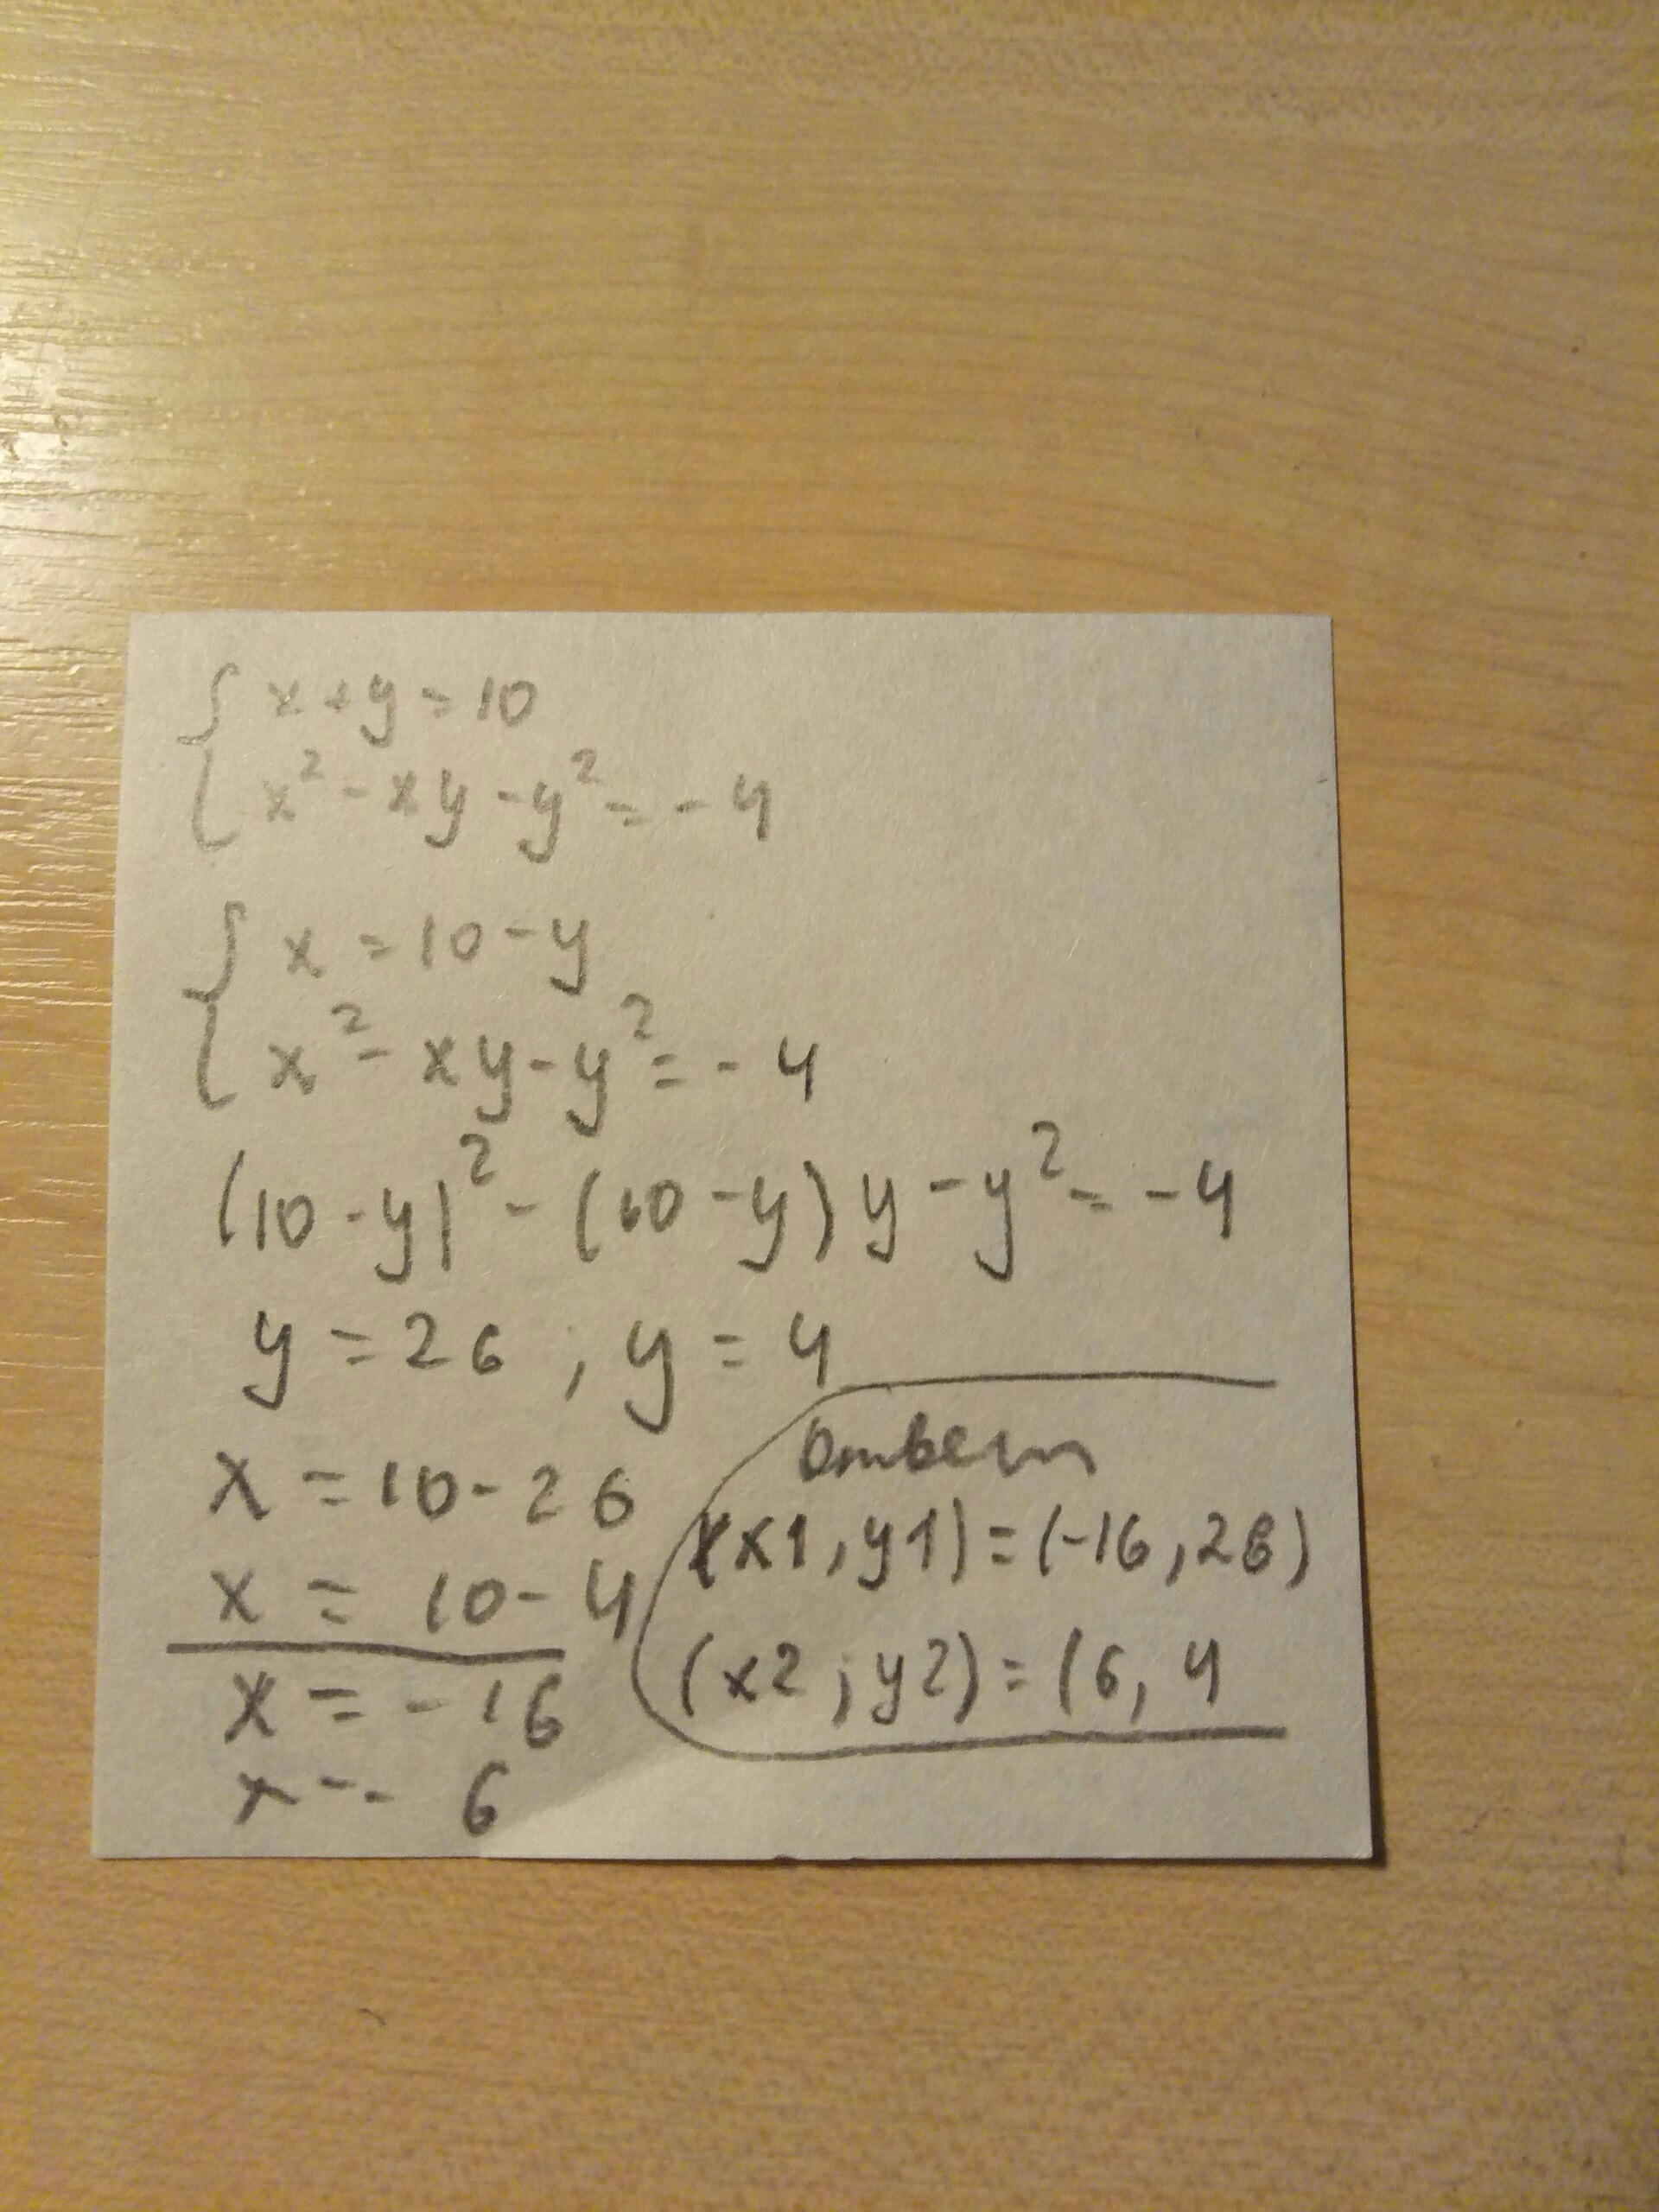 x+y=10
x²-xy-y²=-4
x=10-y
x²-xy-y²=-4
(10-y)²-(10-y)y-y²=-4
y=26, y=4
x=10-26
x=10-4
x=-16
x=6
Ответ
(x1,y1)=(-16,26)
(x2;y2)=(6,4